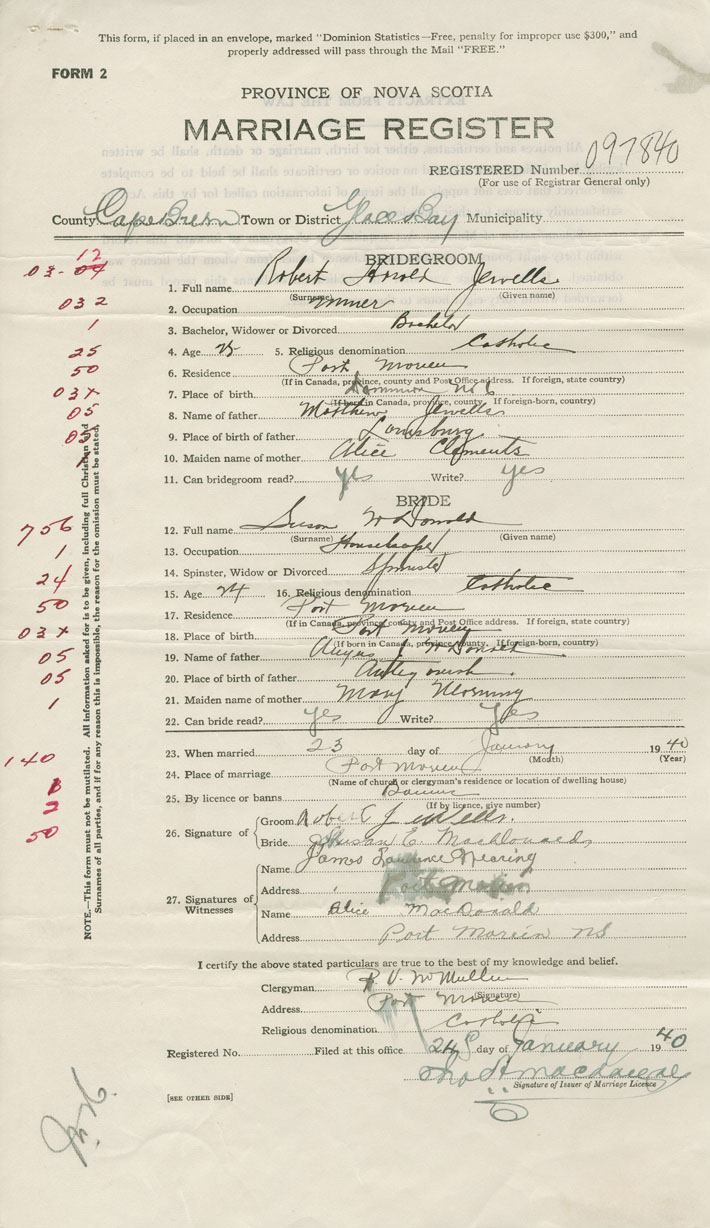 This form, if placed in an envelope, marked "Dominion Statistics—Free, penalty for improper use $300," and
properly addressed will pass through the Mail "FREE."
FORM 2
PROVINCE OF NOVA SCOTIA
MARRIAGE REGISTER
REGISTERED Number 097840
(For use of Registrar General only)
County Cape Breton Town or District Glace Bay Municipality
BRIDEGROOM
12
03-04
1. Full name Robert Harold Jewells
(Surname) (Given name)
032
2. Occupation Miner
1
3. Bachelor, Widower or Divorced Bachelor
25
4. Age 25 5. Religious denomination Catholic
50
6. Residence Port Morien
(If in Canada, province, county and Post Office address. If foreign, state country)
03x
7. Place of birth Dominion No 6
(If born in Canada, province, county. If foreign-born, country)
05
8. Name of father Matthew Jewells
03
9. Place of birth of father Louisburg
10. Maiden name of mother Alice Clements
11. Can bridegroom read? yes Write? yes
BRIDE
756
12. Full name Susan McDonald
(Surname) (Given name)
1
13. Occupation Housekeeper
14. Spinster, Widow or Divorced Spinster
24
15. Age 24 16. Religious denomination Catholic
50
17. Residence Port Morien
(If in Canada, province, county and Post Office address. If foreign, state country)
03x
18. Place of birth Port Morien
(If born in Canada, province, county. If foreign-born, country)
05
19. Name of father Angus J McDonald
05
20. Place of birth of father Antigonish
1
21. Maiden name of mother Mary
22. Can bride read? yes Write? Yes
140
23. When married 23 day of January 1940
(Month) (Year)
24. Place of marriage Port Morien
(Name of church or clergyman's residence or location of dwelling house)
2
25. By licence or banns Banns
(If by licence, give number)
50
26. Signature of
Groom Robert Jewells.
Bride Susan E. MacDonald
27. Signatures of Witnesses
Name James Laurence Wearing
Address Port Morien
Name Alice MacDonald
Address Port Morien NS
I certify the above stated particulars are true to the best of my knowledge and belief.
Clergyman R. V. McMullin
(Signature)
Address Port Morien
Religious denomination Catholic
Registered No. Filed at this office 24 day of January 1940
Signature of Issuer of Marriage Licence
[SEE OTHER SIDE]
NOTE.—This form must not be mutilated. All information asked for is to be given, including full Christian and
Surnames of all parties, and if for any reason this is impossible, the reason for the omission must be stated,